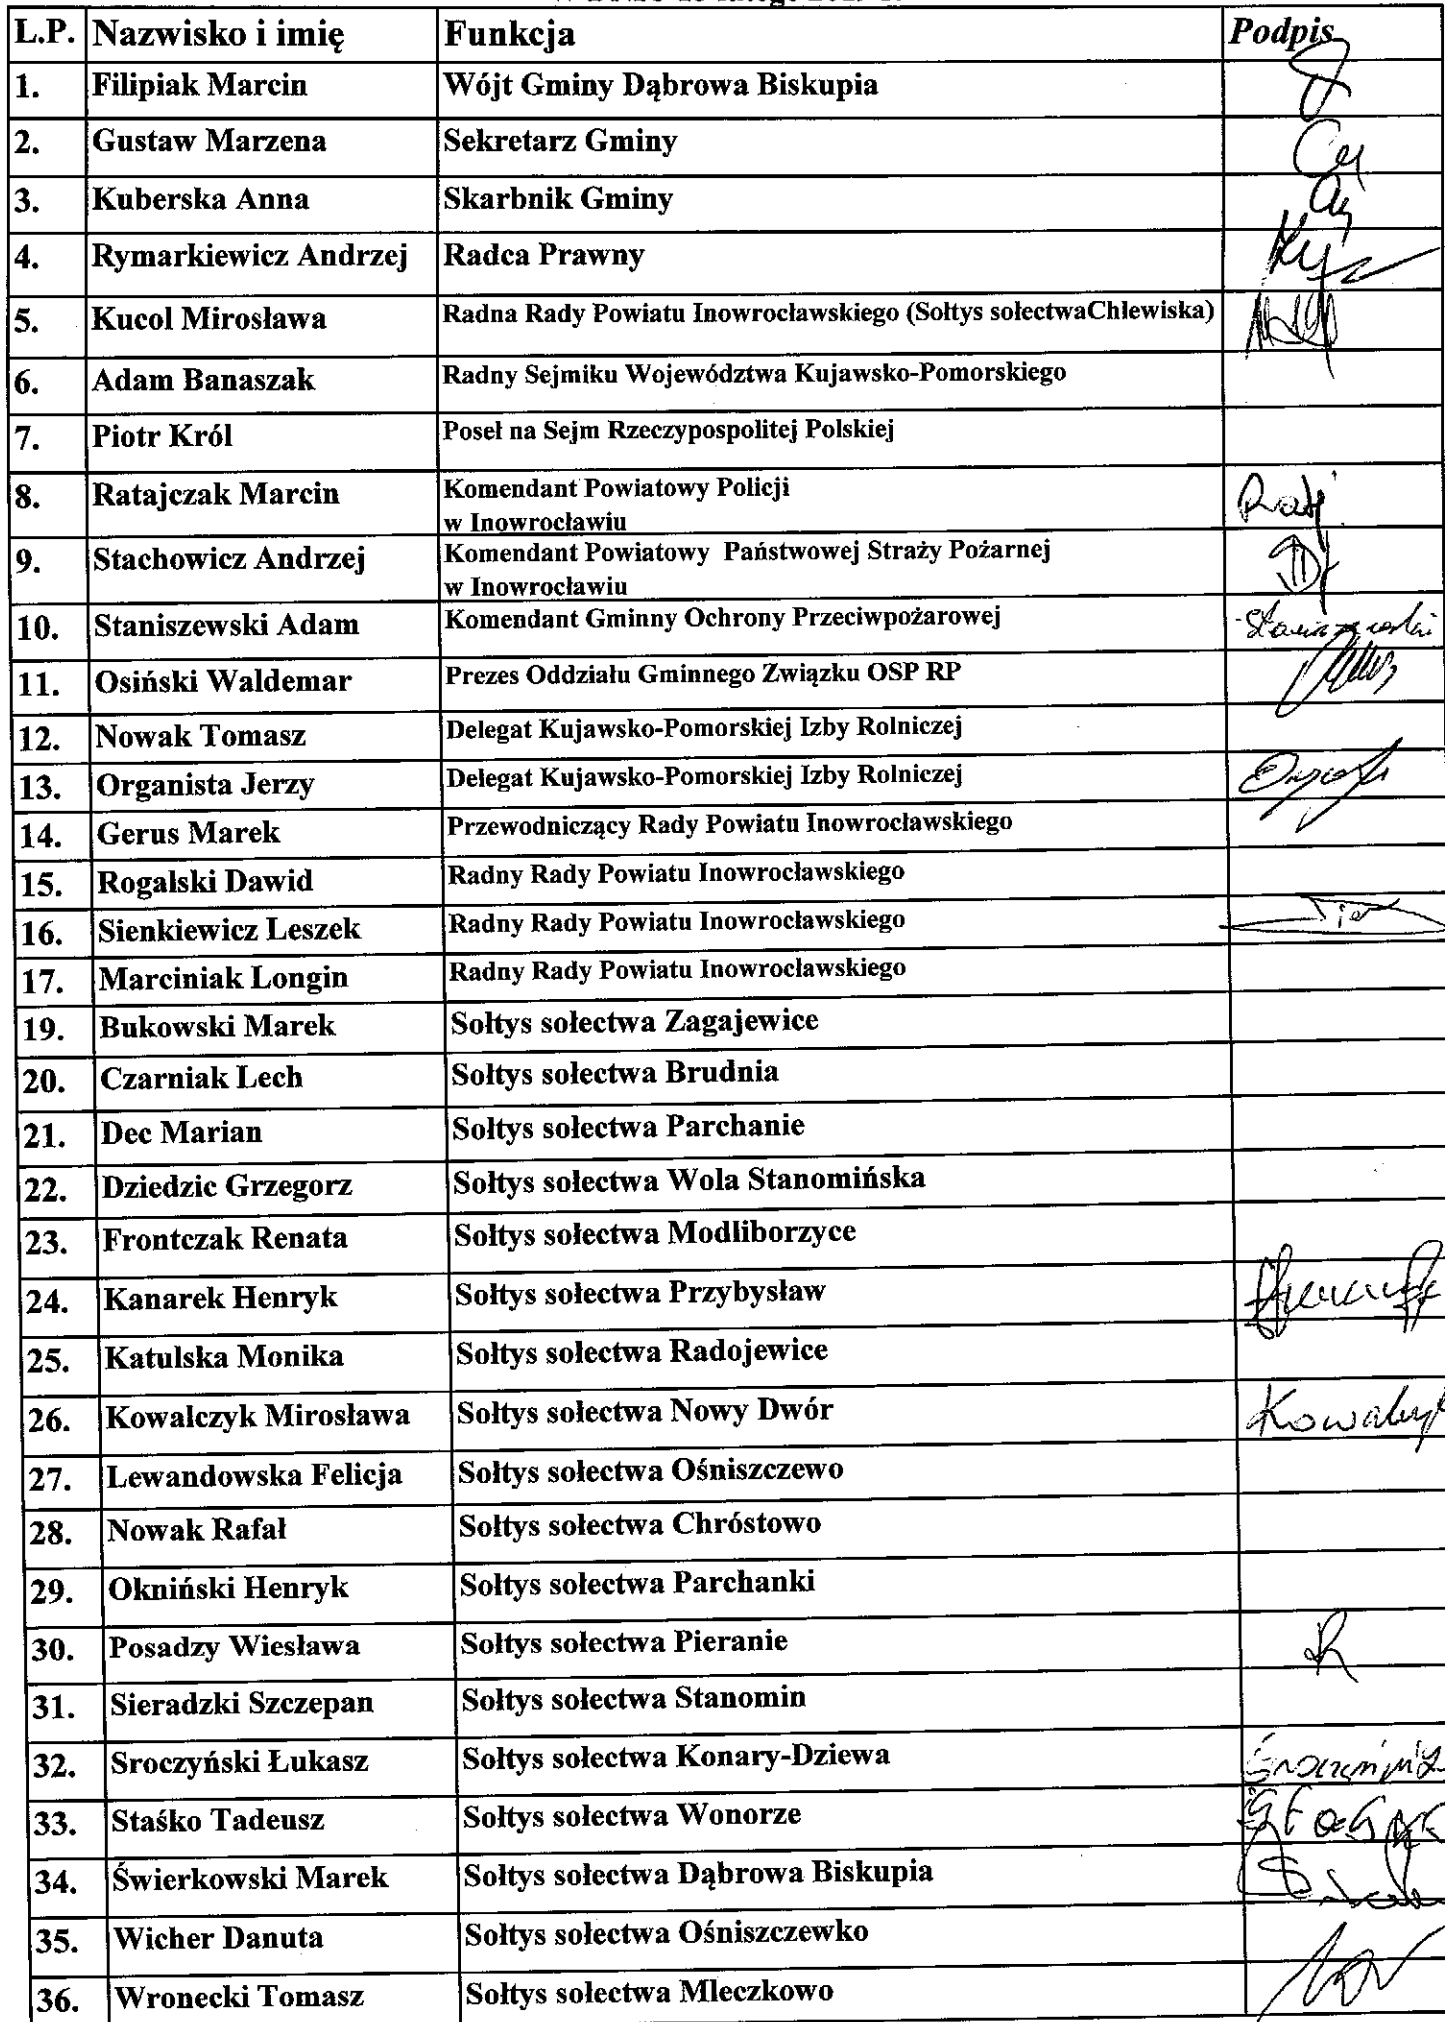 L.P. Nazwisko i imię Funkcja Podpis
1. Filipiak Marcin Wójt Gminy Dąbrowa Biskupia
2. Gustaw Marzena Sekretarz Gminy
3. Kuberska Anna Skarbnik Gminy
4. Rymarkiewicz Andrzej Radca Prawny
5. Kucol Mirosława Radna Rady Powiatu Inowrocławskiego (Sołtys sołectwaChlewiska)
6. Adam Banaszak Radny Sejmiku Województwa Kujawsko-Pomorskiego
7. Piotr Król Poseł na Sejm Rzeczypospolitej Polskiej
8. Ratajczak Marcin Komendant Powiatowy Policji
w Inowrocławiu
9. Stachowicz Andrzej Komendant Powiatowy Państwowej Straży Pożarnej
w Inowrocławiu
10. Staniszewski Adam Komendant Gminny Ochrony Przeciwpożarowej Staniszewski
11. Osiński Waldemar Prezes Oddziału Gminnego Związku OSP RP
12. Nowak Tomasz Delegat Kujawsko-Pomorskiej Izby Rolniczej
13. Organista Jerzy Delegat Kujawsko-Pomorskiej Izby Rolniczej
14. Gerus Marek Przewodniczący Rady Powiatu Inowrocławskiego
15. Rogalski Dawid Radny Rady Powiatu Inowrocławskiego
16. Sienkiewicz Leszek Radny Rady Powiatu Inowrocławskiego
17. Marciniak Longin Radny Rady Powiatu Inowrocławskiego
19. Bukowski Marek Sołtys sołectwa Zagajewice
20. Czarniak Lech Sołtys sołectwa Brudnia
21. Dec Marian Sołtys sołectwa Parchanie
22. Dziedzic Grzegorz Sołtys sołectwa Wola Stanomińska
23. Frontczak Renata Sołtys sołectwa Modliborzyce
24. Kanarek Henryk Sołtys sołectwa Przybysław
25. Katulska Monika Sołtys sołectwa Radojewice
26. Kowalczyk Mirosława Sołtys sołectwa Nowy Dwór
27. Lewandowska Felicja Sołtys sołectwa Ośniszczewo
28. Nowak Rafał Sołtys sołectwa Chróstowo
29. Okniński Henryk Sołtys sołectwa Parchanki
30. Posadzy Wiesława Sołtys sołectwa Pieranie
31. Sieradzki Szczepan Sołtys sołectwa Stanomin
32. Sroczyński Łukasz Sołtys sołectwa Konary-Dziewa
33. Staśko Tadeusz Sołtys sołectwa Wonorze
34. Świerkowski Marek Sołtys sołectwa Dąbrowa Biskupia
35. Wicher Danuta Sołtys sołectwa Ośniszczewko
36. Wronecki Tomasz Sołtys sołectwa Mleczkowo